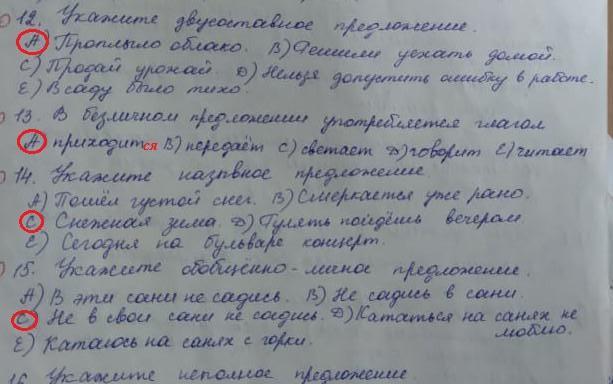 12. Укажите двусоставное предложение.
А) Проплыло облако. В) Решили уехать домой.
С) Продай урожай. D) Нельзя допустить ошибку в работе.
Е) В саду было тихо.
13. В безличном предложении употребляется глагол
А) приходится В) передаёт С) светает D) говорит Е) читает
14. Укажите назывное предложение.
А) Пошёл густой снег. В) Смеркается уже рано.
С) Снежная зима. D) Гулять пойдёшь вечером
Е) Сегодня на бульваре концерт.
15. Укажите обобщённо-личное предложение.
А) В эти сани не садись. В) Не садись в сани.
С) Не в свои сани не садись. D) Кататься на санях не
люблю.
Е) Катаюсь на санях с горки.
16. Укажите неполное предложение.